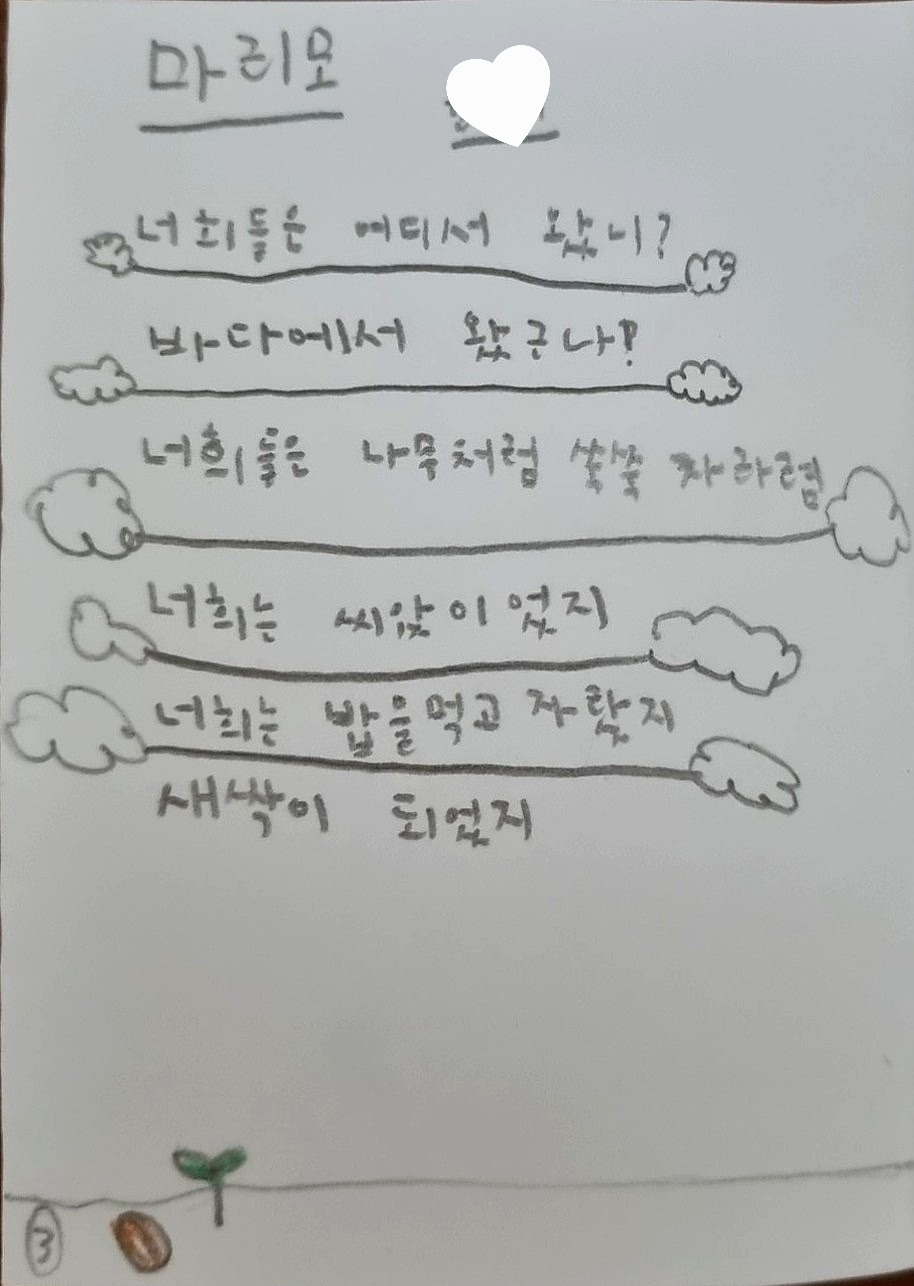 마리모
너희들은 어디서 왔니?
바다에서 왔구나!
너희들은 나무처럼 쑥쑥 자라렴
너희는 씨앗이었지
너희는 밥을먹고 자랐지
새싹이 되었지
3